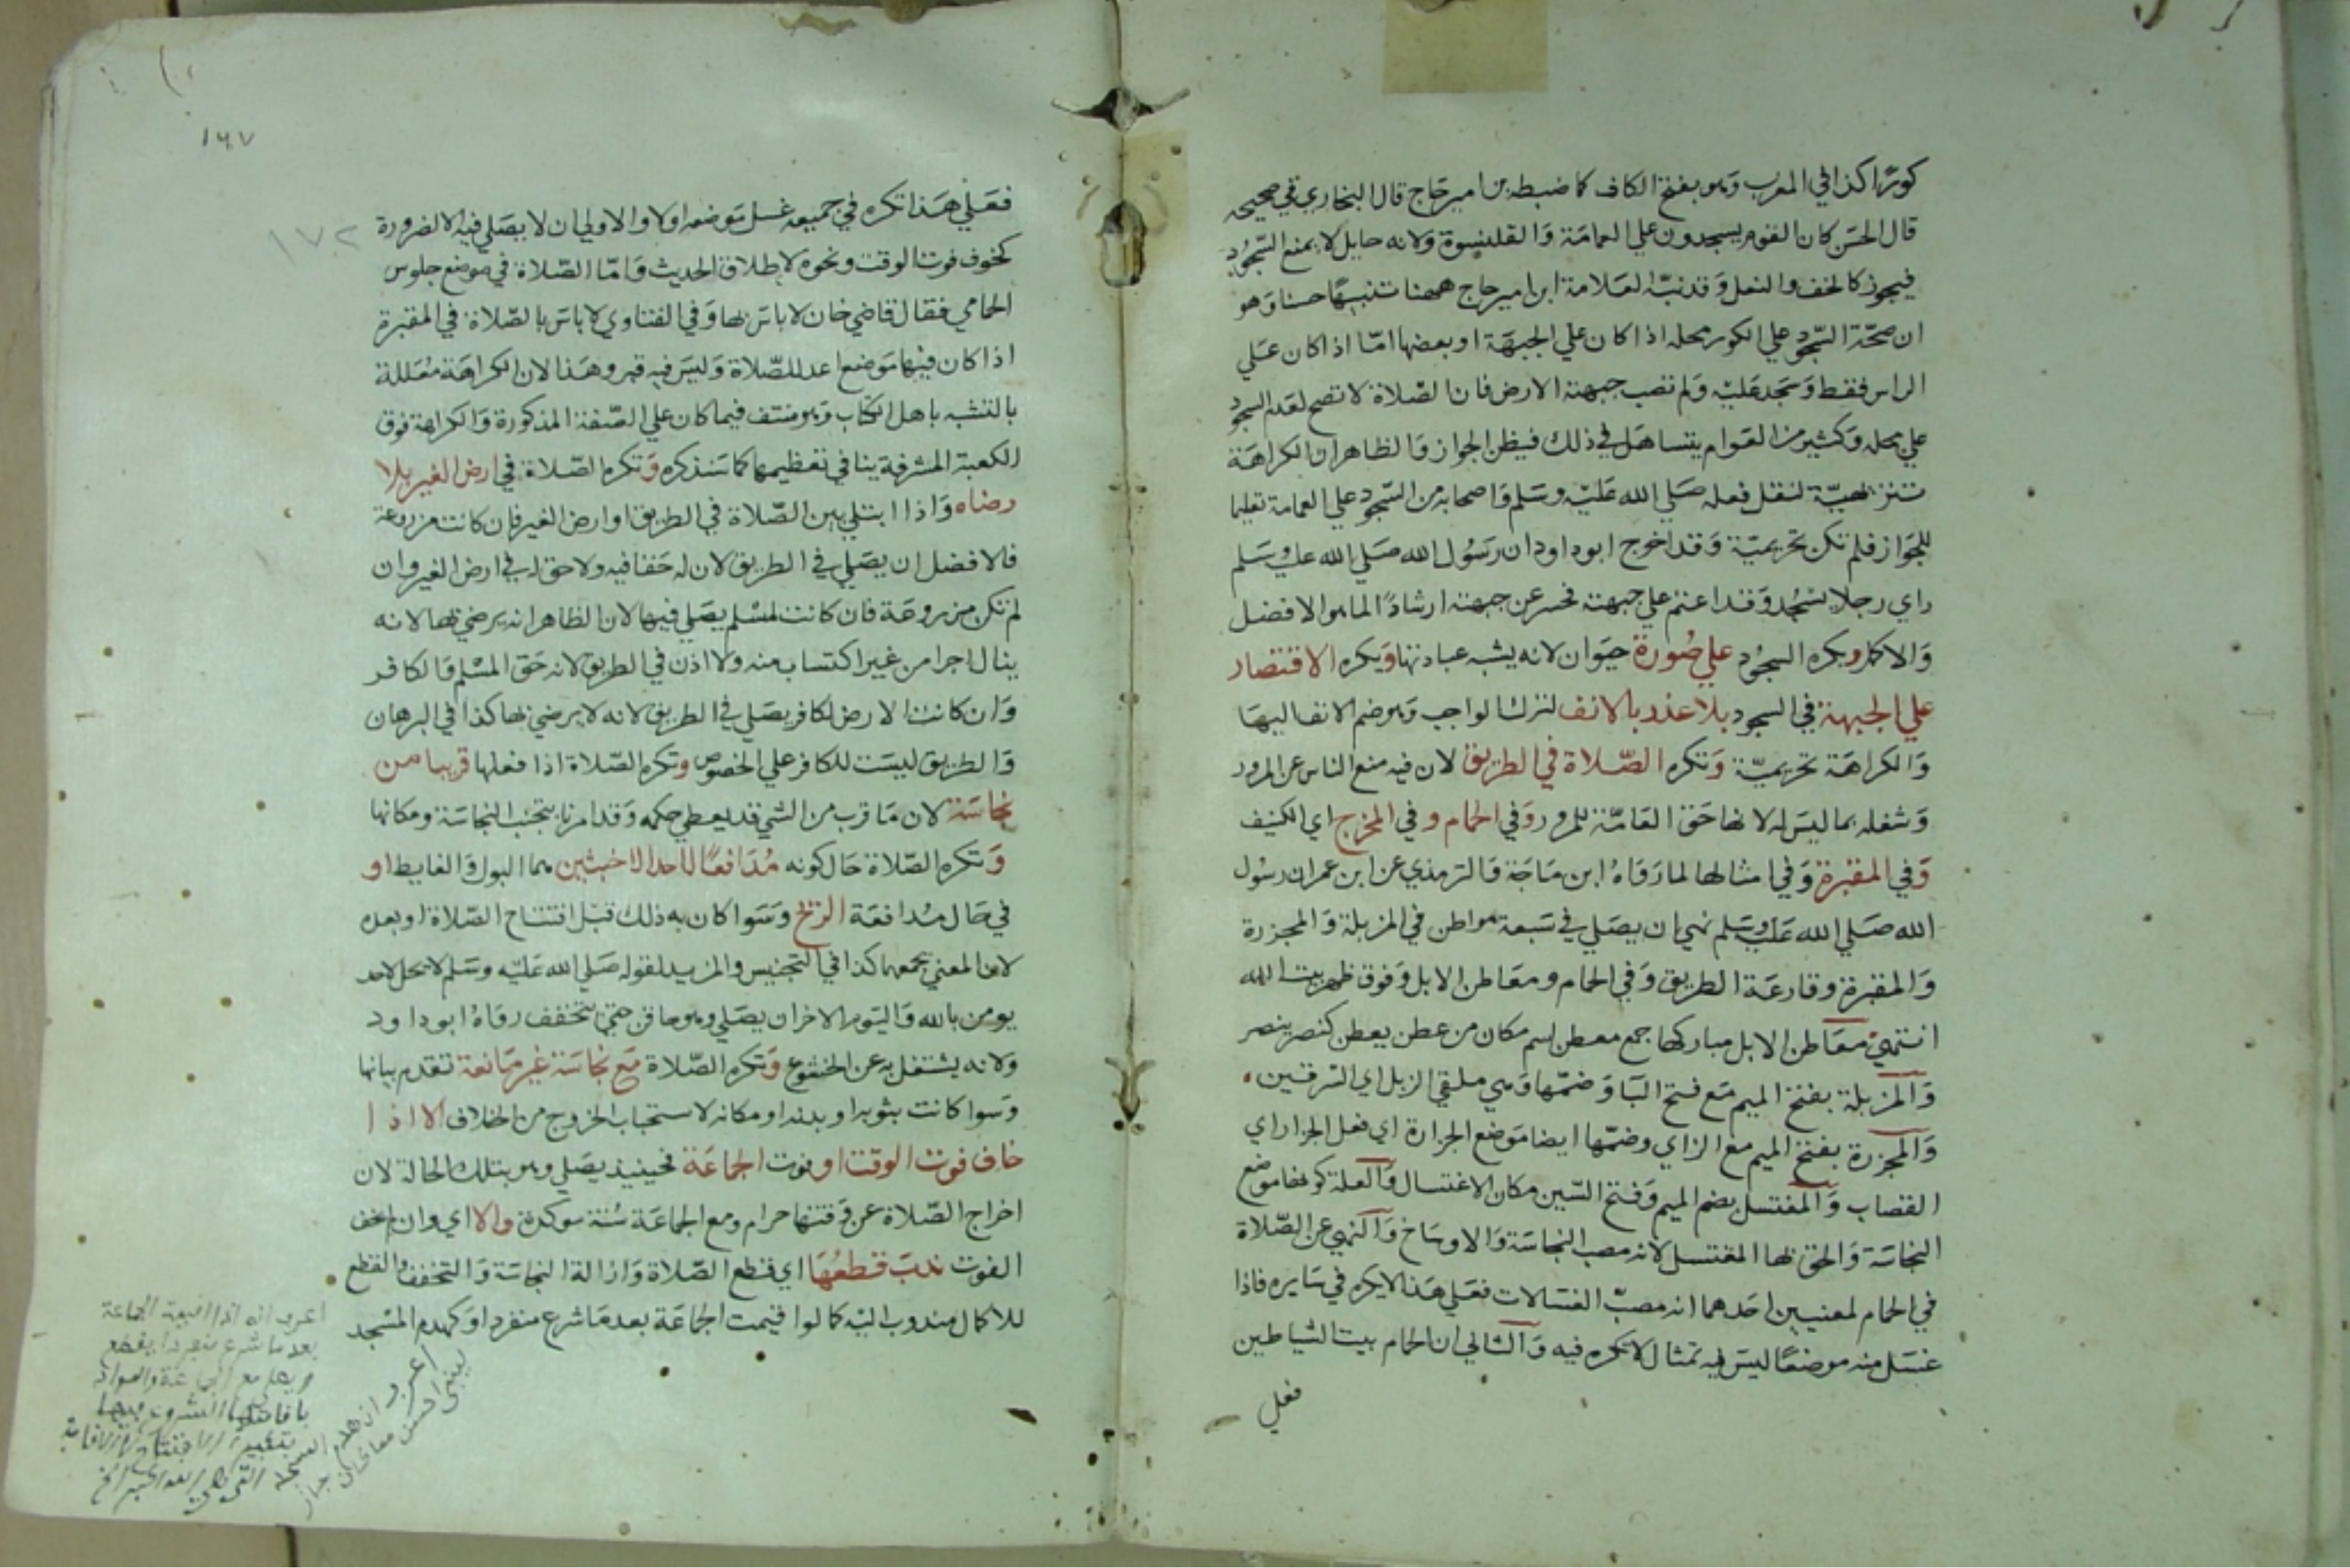 كورًا كذا في المغرب وهو بفتح الكاف كما ضبطه بن امير حاج قال البخاري في صحيحه
قال الحسن كان القوم يسجدون علي العمامة والقلنسوة ولانه حايل لا يمنع السجود
فيجوز كالخف والنعل وقد نبه العلامة ابن امير حاج ههنا تنبيها حسنا وهو
ان صحة السجود علي الكور محله اذا كان علي الجبهة او بعضها امّا اذا كان علي
الراس فقط وسجد عليه ولم تصب جبهته الارض فان الصلاة لا تصح لعدم السجود
علي محله وكثير من العوام يتساهل في ذلك فيظن الجواز والظاهر ان الكراهة
تنزيهية لنقل فعله صلي الله عليه وسلم واصحابه من السجود علي العمامة تعليما
للجواز فلم تكن تحريمية وقد اخرج ابو داود ان رسول الله صلي الله عليه وسلم
راي رجلا يسجد وقد اعتم علي جبهته فحسر عن جبهته ارشادًا لما هو الافضل
والاكمل ويكره السجود علي صورة حيوان لانه يشبه عبادتها ويكره الاقتصار
علي الجبهة في السجود بلا عذر بالانف لترك الواجب وهو ضم الانف اليها
والكراهة تحريمية وتكره الصلاة في الطريق لان فيه منع الناس عن المرور
وشغله بما ليس له لانها حق العامة للمرور وفي الحمام وفي المخرج اي الكنيف
وفي المقبرة وفي امثالها لما رواه ابن ماجة والترمذي عن ابن عمر ان رسول
الله صلي الله عليه وسلم نهي ان يصلي في سبعة مواطن في المزبلة والمجزرة
والمقبرة وقارعة الطريق وفي الحمام ومعاطن الابل وفوق ظهر بيت الله
انتهي معاطن الابل مباركها جمع معطن اسم مكان من عطن يعطن كنصر ينصر
والمزبلة بفتح الميم مع فتح البا وضمها وهي ملقي الزبل اي السرقين
والمجزرة بفتح الميم مع الزاي وضمها ايضا موضع الجزارة اي فعل الجزار اي
القصاب والمغتسل بضم الميم وفتح السين مكان الاغتسال والعلة كونها موضع
النجاسة والحق بها المغتسل لانه مصب النجاسة والاوساخ والنهي عن الصلاة
في الحمام لمعنيين احدهما انه مصب الغسالات فعلي هذا لا يكره في سايره فاذا
غسل منه موضعًا ليس فيه تمثال لا يكره فيه والثاني ان الحمام بيت الشياطين
فعلي
١٦٧
١٧٢
فعلي هذا تكره في جميعه غسل موضعه اولا والاولي ان لا يصلي فيه الا لضرورة
كخوف فوت الوقت ونحوه لاطلاق الحديث وامّا الصلاة في موضع جلوس
الحمامي فقال قاضي خان لا باس بها وفي الفتاوي لا باس بالصلاة في المقبرة
اذا كان فيها موضع اعد للصلاة وليس فيه قبر وهذا لان الكراهة معللة
بالتشبه باهل الكتاب وهو منتف فيما كان علي الصفة المذكورة والكراهة فوق
الكعبة المشرفة ينافي تعظيمها كما سنذكره وتكره الصلاة في ارض الغير بلا
رضاه واذا ابتلي بين الصلاة في الطريق او ارض الغير فان كانت مزروعة
فالافضل ان يصلي في الطريق لان له حقا فيه ولا حق له في ارض الغير وان
لم تكن مزروعة فان كانت لمسلم يصلي فيها لان الظاهر انه يرضي بها لانه
ينال اجرا من غير اكتساب منه ولا اذن في الطريق لانه حق المسلم والكافر
وان كانت الارض لكافر يصلي في الطريق لانه لا يرضي بها كذا في البرهان
والطريق ليست للكافر علي الخصوص وتكره الصلاة اذا فعلها قريبا من
نجاسة لان ما قرب من الشي قد يعطي حكمه وقد امرنا بتجنب النجاسة ومكانها
وتكره الصلاة حال كونه مدافعًا لاحد الاخبثين هما البول والغايط او
في حال مدافعة الريح وسوا كان به ذلك قبل افتتاح الصلاة او بعده
لان المعني يجمعهما كذا في التجنيس والمزيد لقوله صلي الله عليه وسلم لا يحل لاحد
يومن بالله واليوم الاخر ان يصلي وهو حاقن حتي يتخفف رواه ابو داود
ولانه يشتغل به عن الخشوع وتكره الصلاة مع نجاسة غير مانعة تقدم بيانها
وسوا كانت بثوبه او بدنه او مكانه لاستحباب الخروج من الخلاف الا اذا
خاف فوت الوقت او فوت الجماعة فحينيذ يصلي وهو بتلك الحالة لان
اخراج الصلاة عن وقتها حرام ومع الجماعة سنة موكدة والا اي وان لم يخف
الفوت ندب قطعها اي قطع الصلاة وازالة النجاسة والتخفف والقطع
للاكمال مندوب اليه كما لو اقيمت الجماعة بعد ما شرع منفردا وكهدم المسجد
اعرف انه اذا اقيمت الجماعة
بعد ما شرع منفردا يقطع